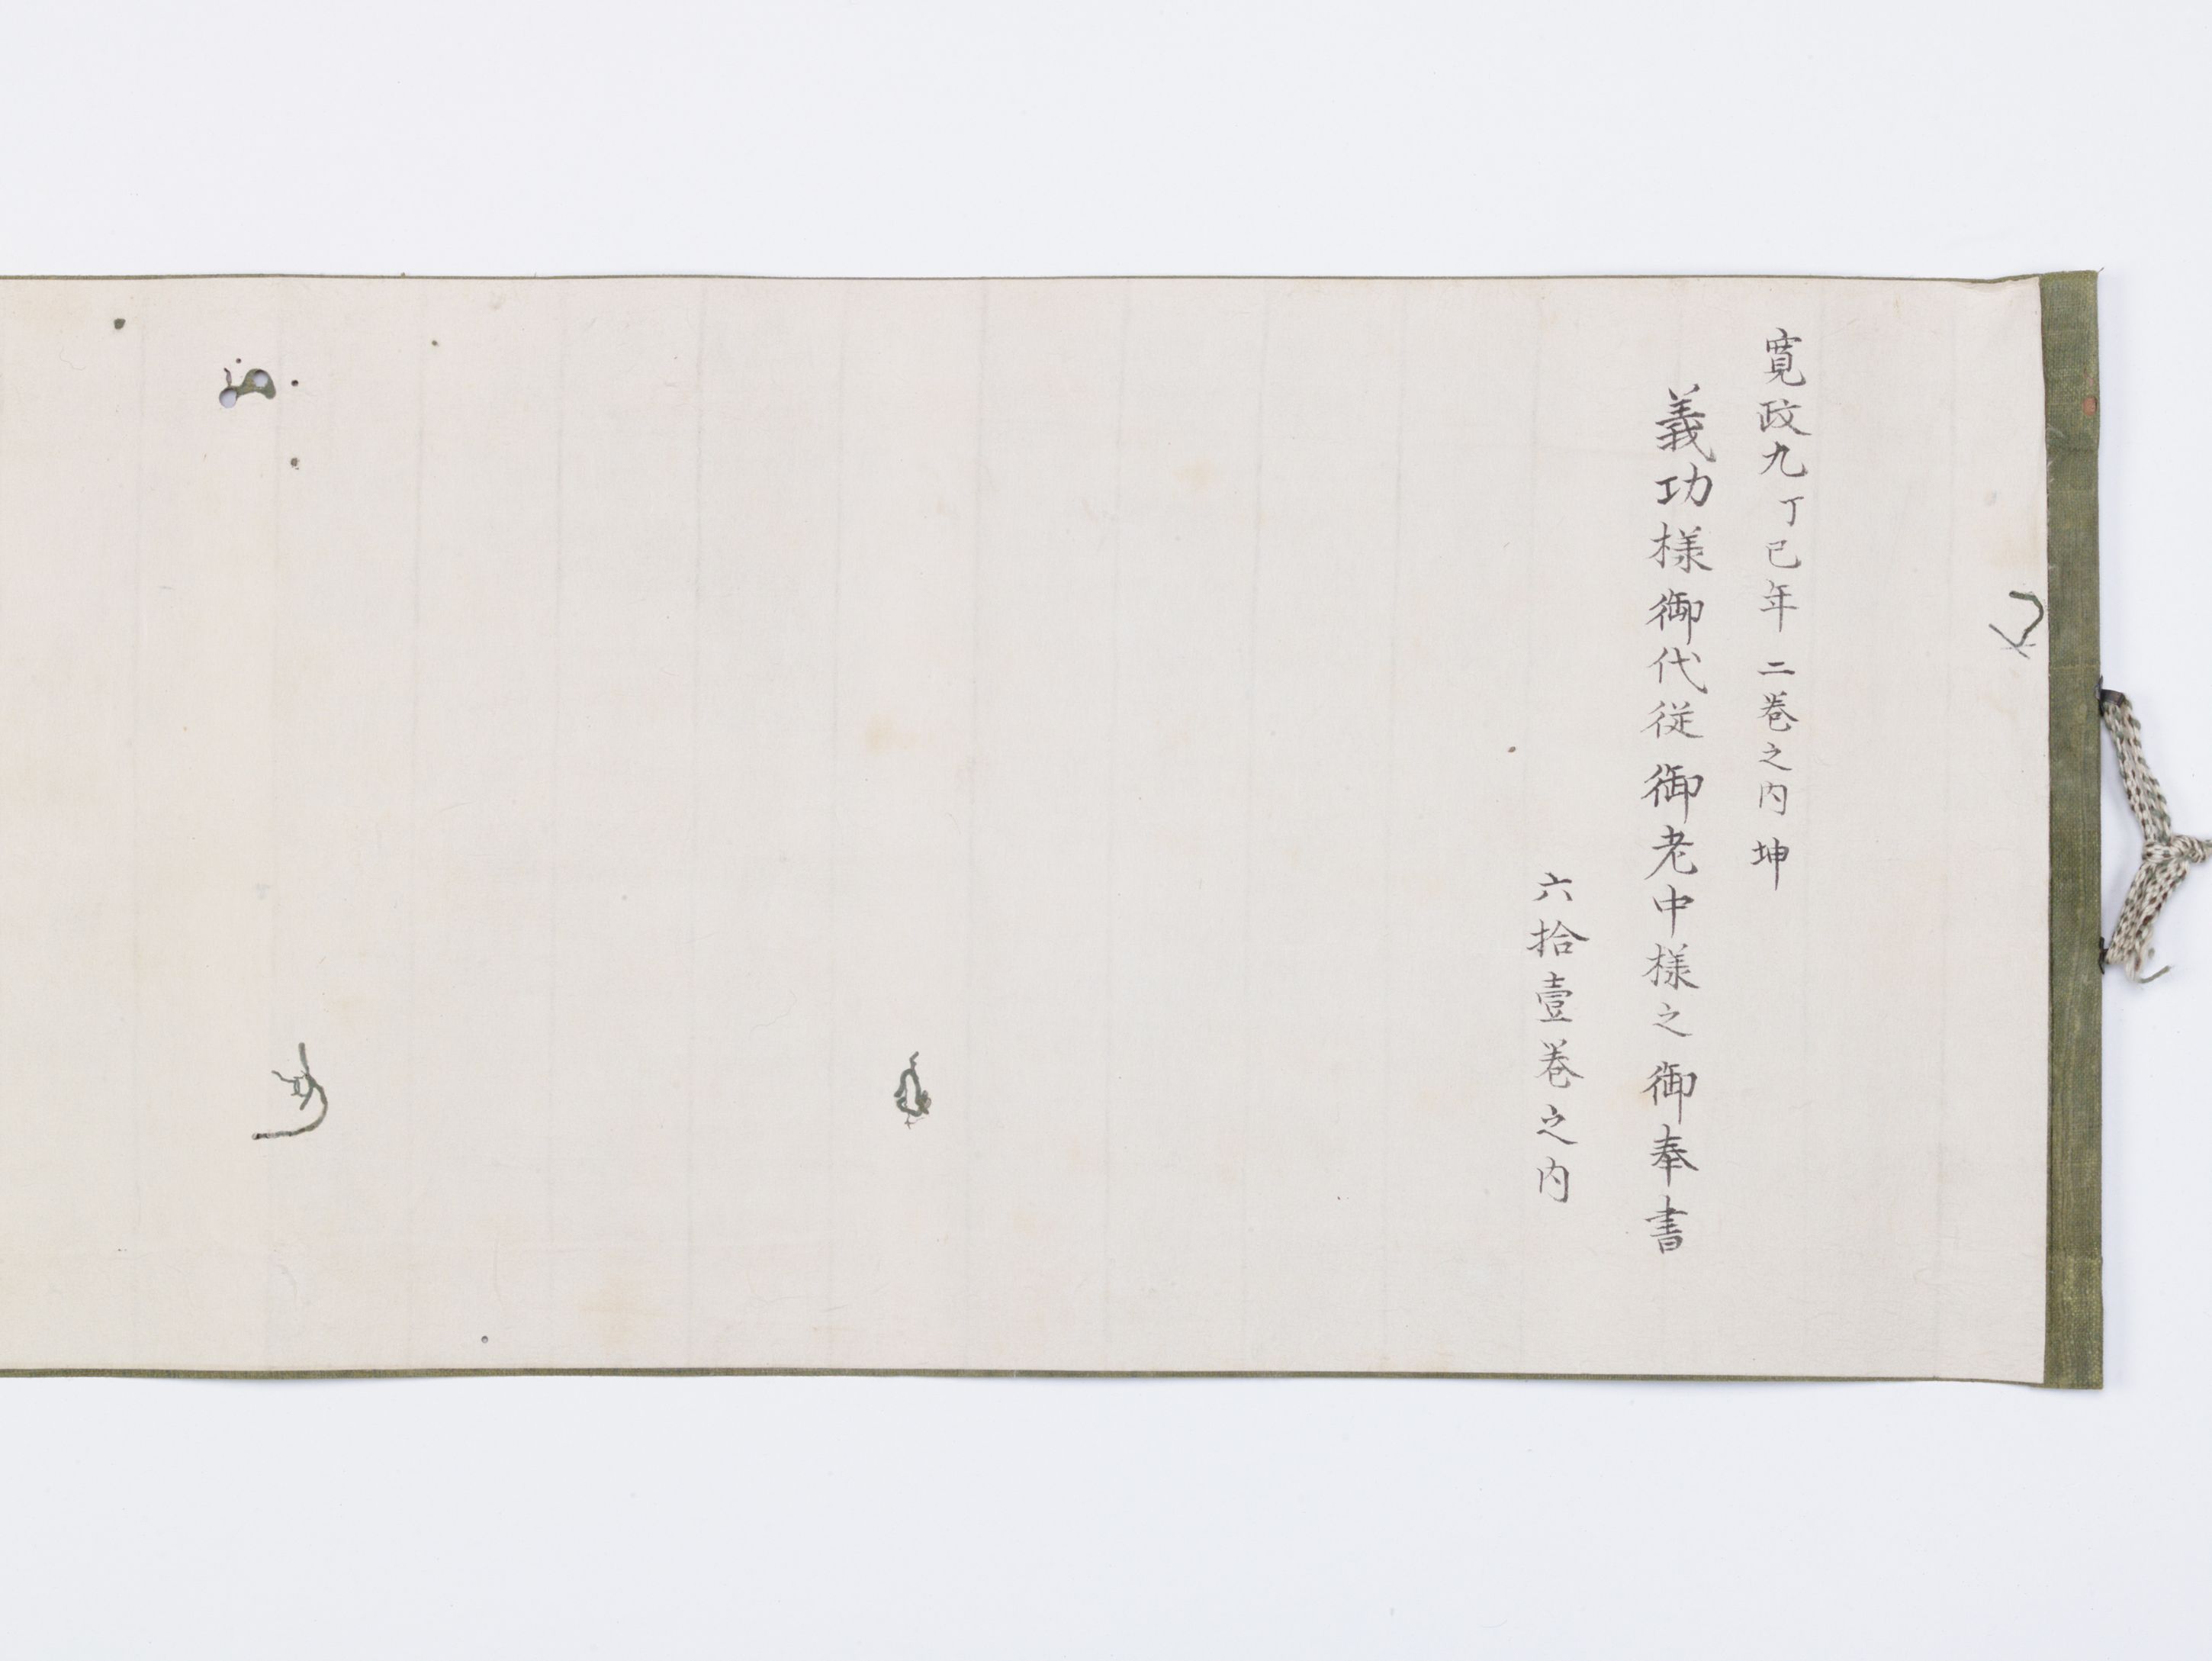 寛政九丁巳年 二巻之内 坤
義功様御代従 御老中様之 御奉書
六拾壹巻之内